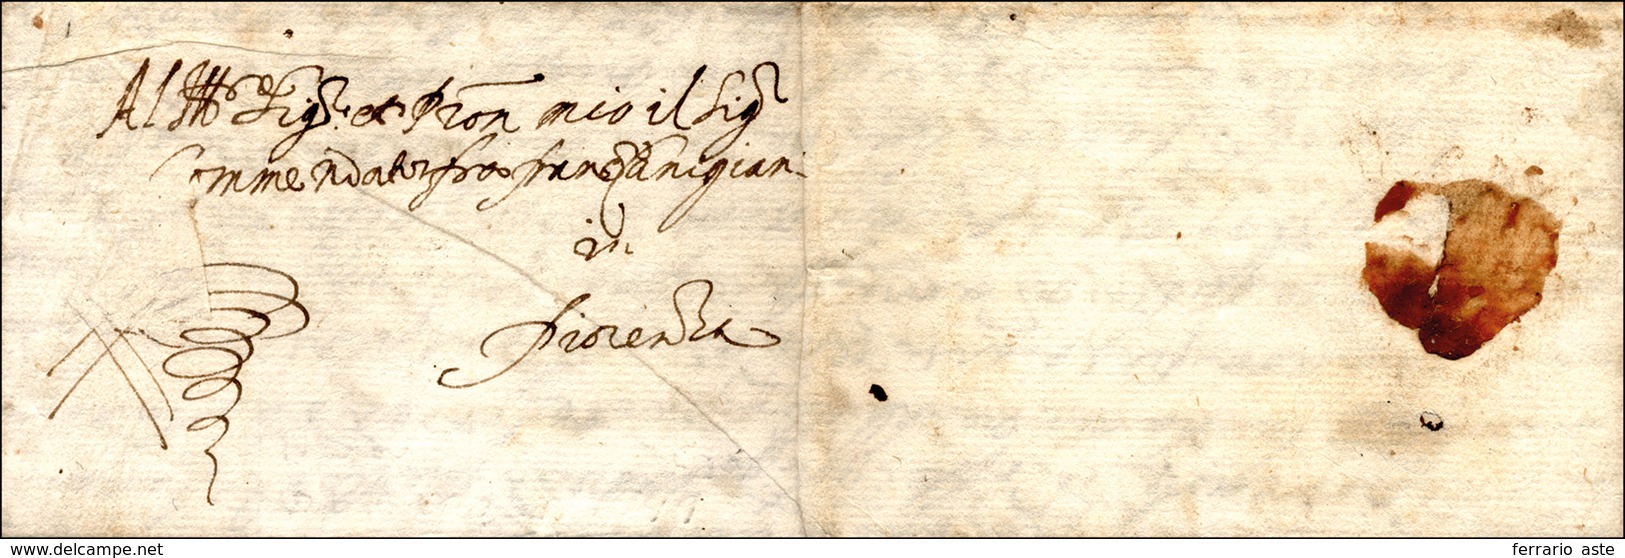 Al Ill.º Sig.r et Pron mio il Sig.r
Commendator fra Fran.co
in
Fiorenza
www.delcampe.net
ferrario aste